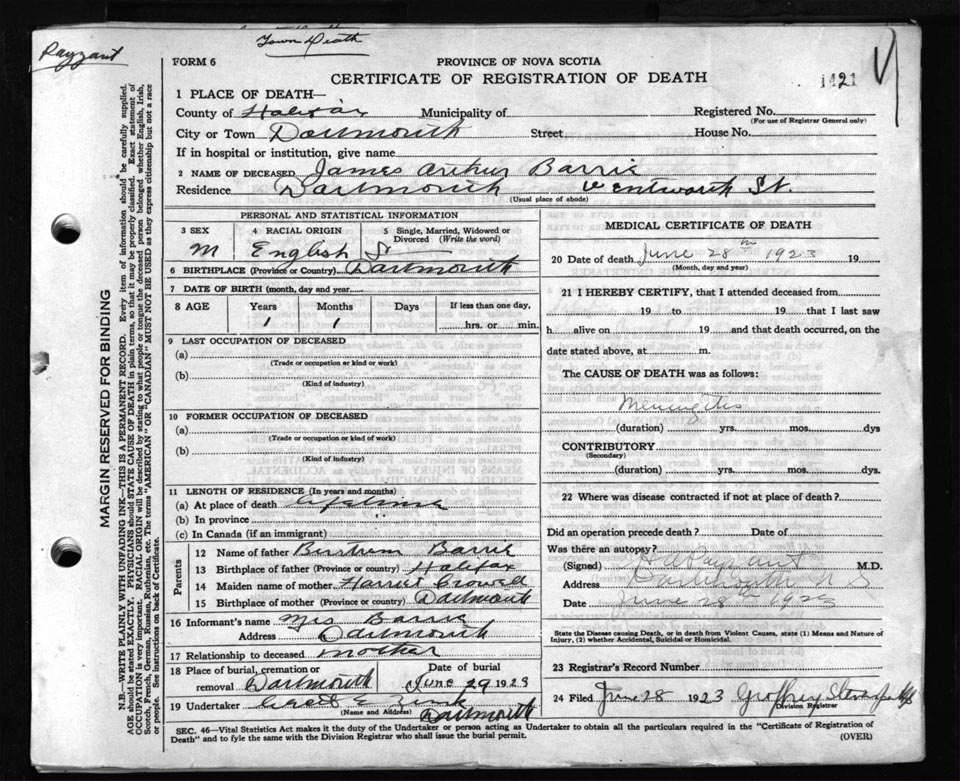 Payzant
Town Death
FORM 6
PROVINCE OF NOVA SCOTIA
CERTIFICATE OF REGISTRATION OF DEATH
1421
1 PLACE OF DEATH—
County of Halifax Municipality of Registered No.
(For use of Registrar General only)
City or Town Dartmouth Street House No.
If in hospital or institution, give name
2 NAME OF DECEASED James Arthur Barrie
Residence Dartmouth Wentworth St.
(Usual place of abode)
PERSONAL AND STATISTICAL INFORMATION
3 SEX M
4 RACIAL ORIGIN English
5 Single, Married, Widowed or Divorced (Write the word) S
6 BIRTHPLACE (Province or Country) Dartmouth
7 DATE OF BIRTH (month, day and year)
8 AGE Years Months Days If less than one day,
1 1 hrs. or min.
9 LAST OCCUPATION OF DECEASED
(a)
(Trade or occupation or kind of work)
(b)
(Kind of industry)
10 FORMER OCCUPATION OF DECEASED
(a)
(Trade or occupation or kind of work)
(b)
(Kind of industry)
11 LENGTH OF RESIDENCE (In years and months)
(a) At place of death lifetime
(b) In province
(c) In Canada (if an immigrant)
Parents
12 Name of father Bertrum Barrie
13 Birthplace of father (Province or country) Halifax
14 Maiden name of mother Harriet Crowell
15 Birthplace of mother (Province or country) Dartmouth
16 Informant's name Mrs Barrie
Address Dartmouth
17 Relationship to deceased mother
18 Place of burial, cremation or removal Dartmouth Date of burial June 29 1923
19 Undertaker
(Name and Address) Dartmouth
MEDICAL CERTIFICATE OF DEATH
20 Date of death June 28th 1923 19
(Month, day and year)
21 I HEREBY CERTIFY, that I attended deceased from
19 to 19 that I last saw
h alive on 19 and that death occurred, on the
date stated above, at m.
The CAUSE OF DEATH was as follows:
Meningitis
(duration) yrs. mos. dys
CONTRIBUTORY
(Secondary)
(duration) yrs. mos. dys.
22 Where was disease contracted if not at place of death?
Did an operation precede death? Date of
Was there an autopsy?
(Signed) Payzant M.D.
Address Dartmouth N S
Date June 28th 1923
State the Disease causing Death, or in death from Violent Causes, state (1) Means and Nature of
Injury, (2) whether Accidental, Suicidal or Homicidal.
23 Registrar's Record Number
24 Filed June 28 1923 Geoffrey
Division Registrar
SEC. 46—Vital Statistics Act makes it the duty of the Undertaker or person acting as Undertaker to obtain all the particulars required in the "Certificate of Registration of
Death" and to fyle the same with the Division Registrar who shall issue the burial permit.
(OVER)
MARGIN RESERVED FOR BINDING
N.B.—WRITE PLAINLY WITH UNFADING INK—THIS IS A PERMANENT RECORD. Every item of information should be carefully supplied.
AGE should be stated EXACTLY. PHYSICIANS should STATE CAUSE OF DEATH in plain terms, so that it may be properly classified. Exact statement of
OCCUPATION is very important. RACIAL ORIGIN will be described by stating to what people or tongue the deceased person belonged whether English, Irish,
Scotch, French, German, Russian, Ruthenian, etc. The terms "AMERICAN" OR "CANADIAN" MUST NOT BE USED as they express citizenship but not a race
or people. See instructions on back of Certificate.